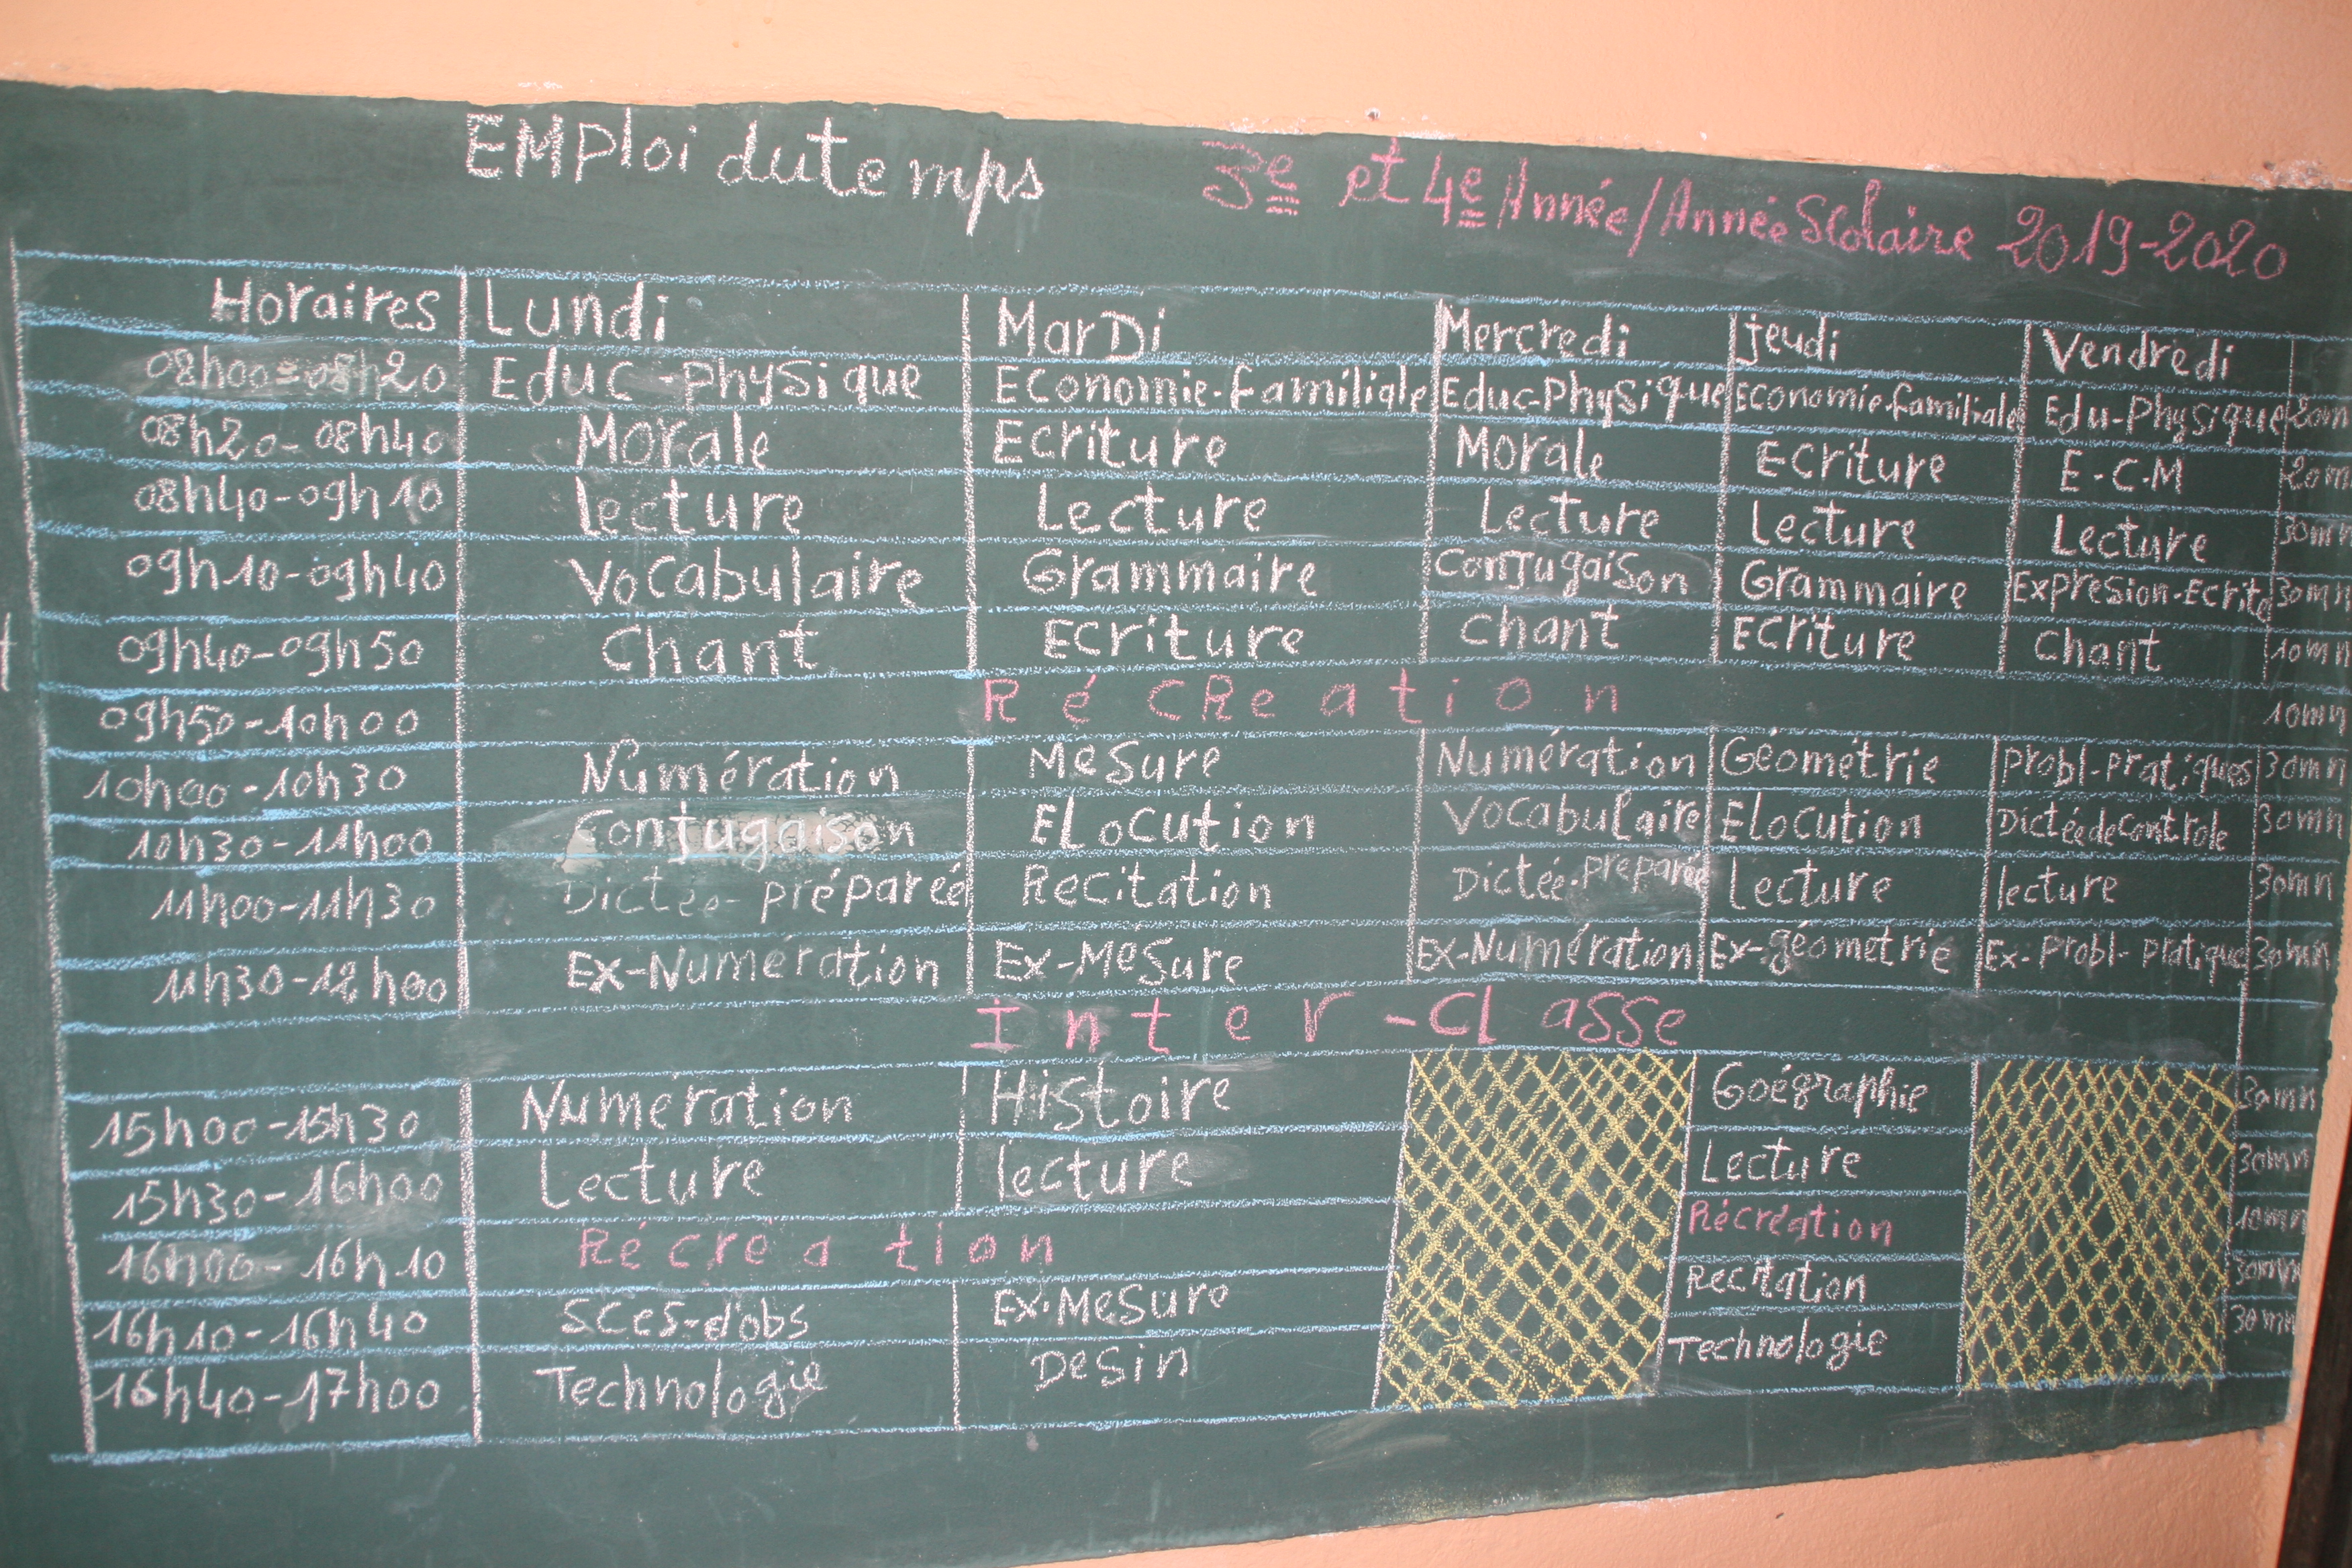 EMPloi du temps 3e et 4e Année/Année Scolaire 2019-2020
Horaires Lundi MarDi Mercredi jeudi Vendredi
08h00=08h20 Educ-physique Economie-familiale Educ-Physique Economie-familiale Edu-Physique 20mn
08h20-08h40 Morale Ecriture Morale Ecriture E-C-M 20mn
08h40-09h10 Lecture Lecture Lecture Lecture Lecture 30mn
09h10-09h40 Vocabulaire Grammaire Conjugaison Grammaire Expresion-Ecrite 30mn
09h40-09h50 Chant Ecriture Chant Ecriture Chant 10mn
09h50-10h00 RéCReation 10mn
10h00-10h30 Numération Mesure Numération Géométrie Probl-pratiques 30mn
10h30-11h00 Conjugaison Elocution Vocabulaire Elocution Dictée de Controle 30mn
11h00-11h30 Dictée-préparée Recitation Dictée-préparée Lecture lecture 30mn
11h30-12h00 Ex-Numération Ex-Mesure Ex-Numération Ex-géometrie Ex-Probl-pratique 30mn
Inter-Classe
15h00-15h30 Numeration Histoire Goégraphie 30mn
15h30-16h00 Lecture lecture Lecture 30mn
16h00-16h10 Récréation Récréation 10mn
16h10-16h40 SCes-d'obs Ex-Mesure Recitation 30mn
16h40-17h00 Technologie Desin Technologie 30mn